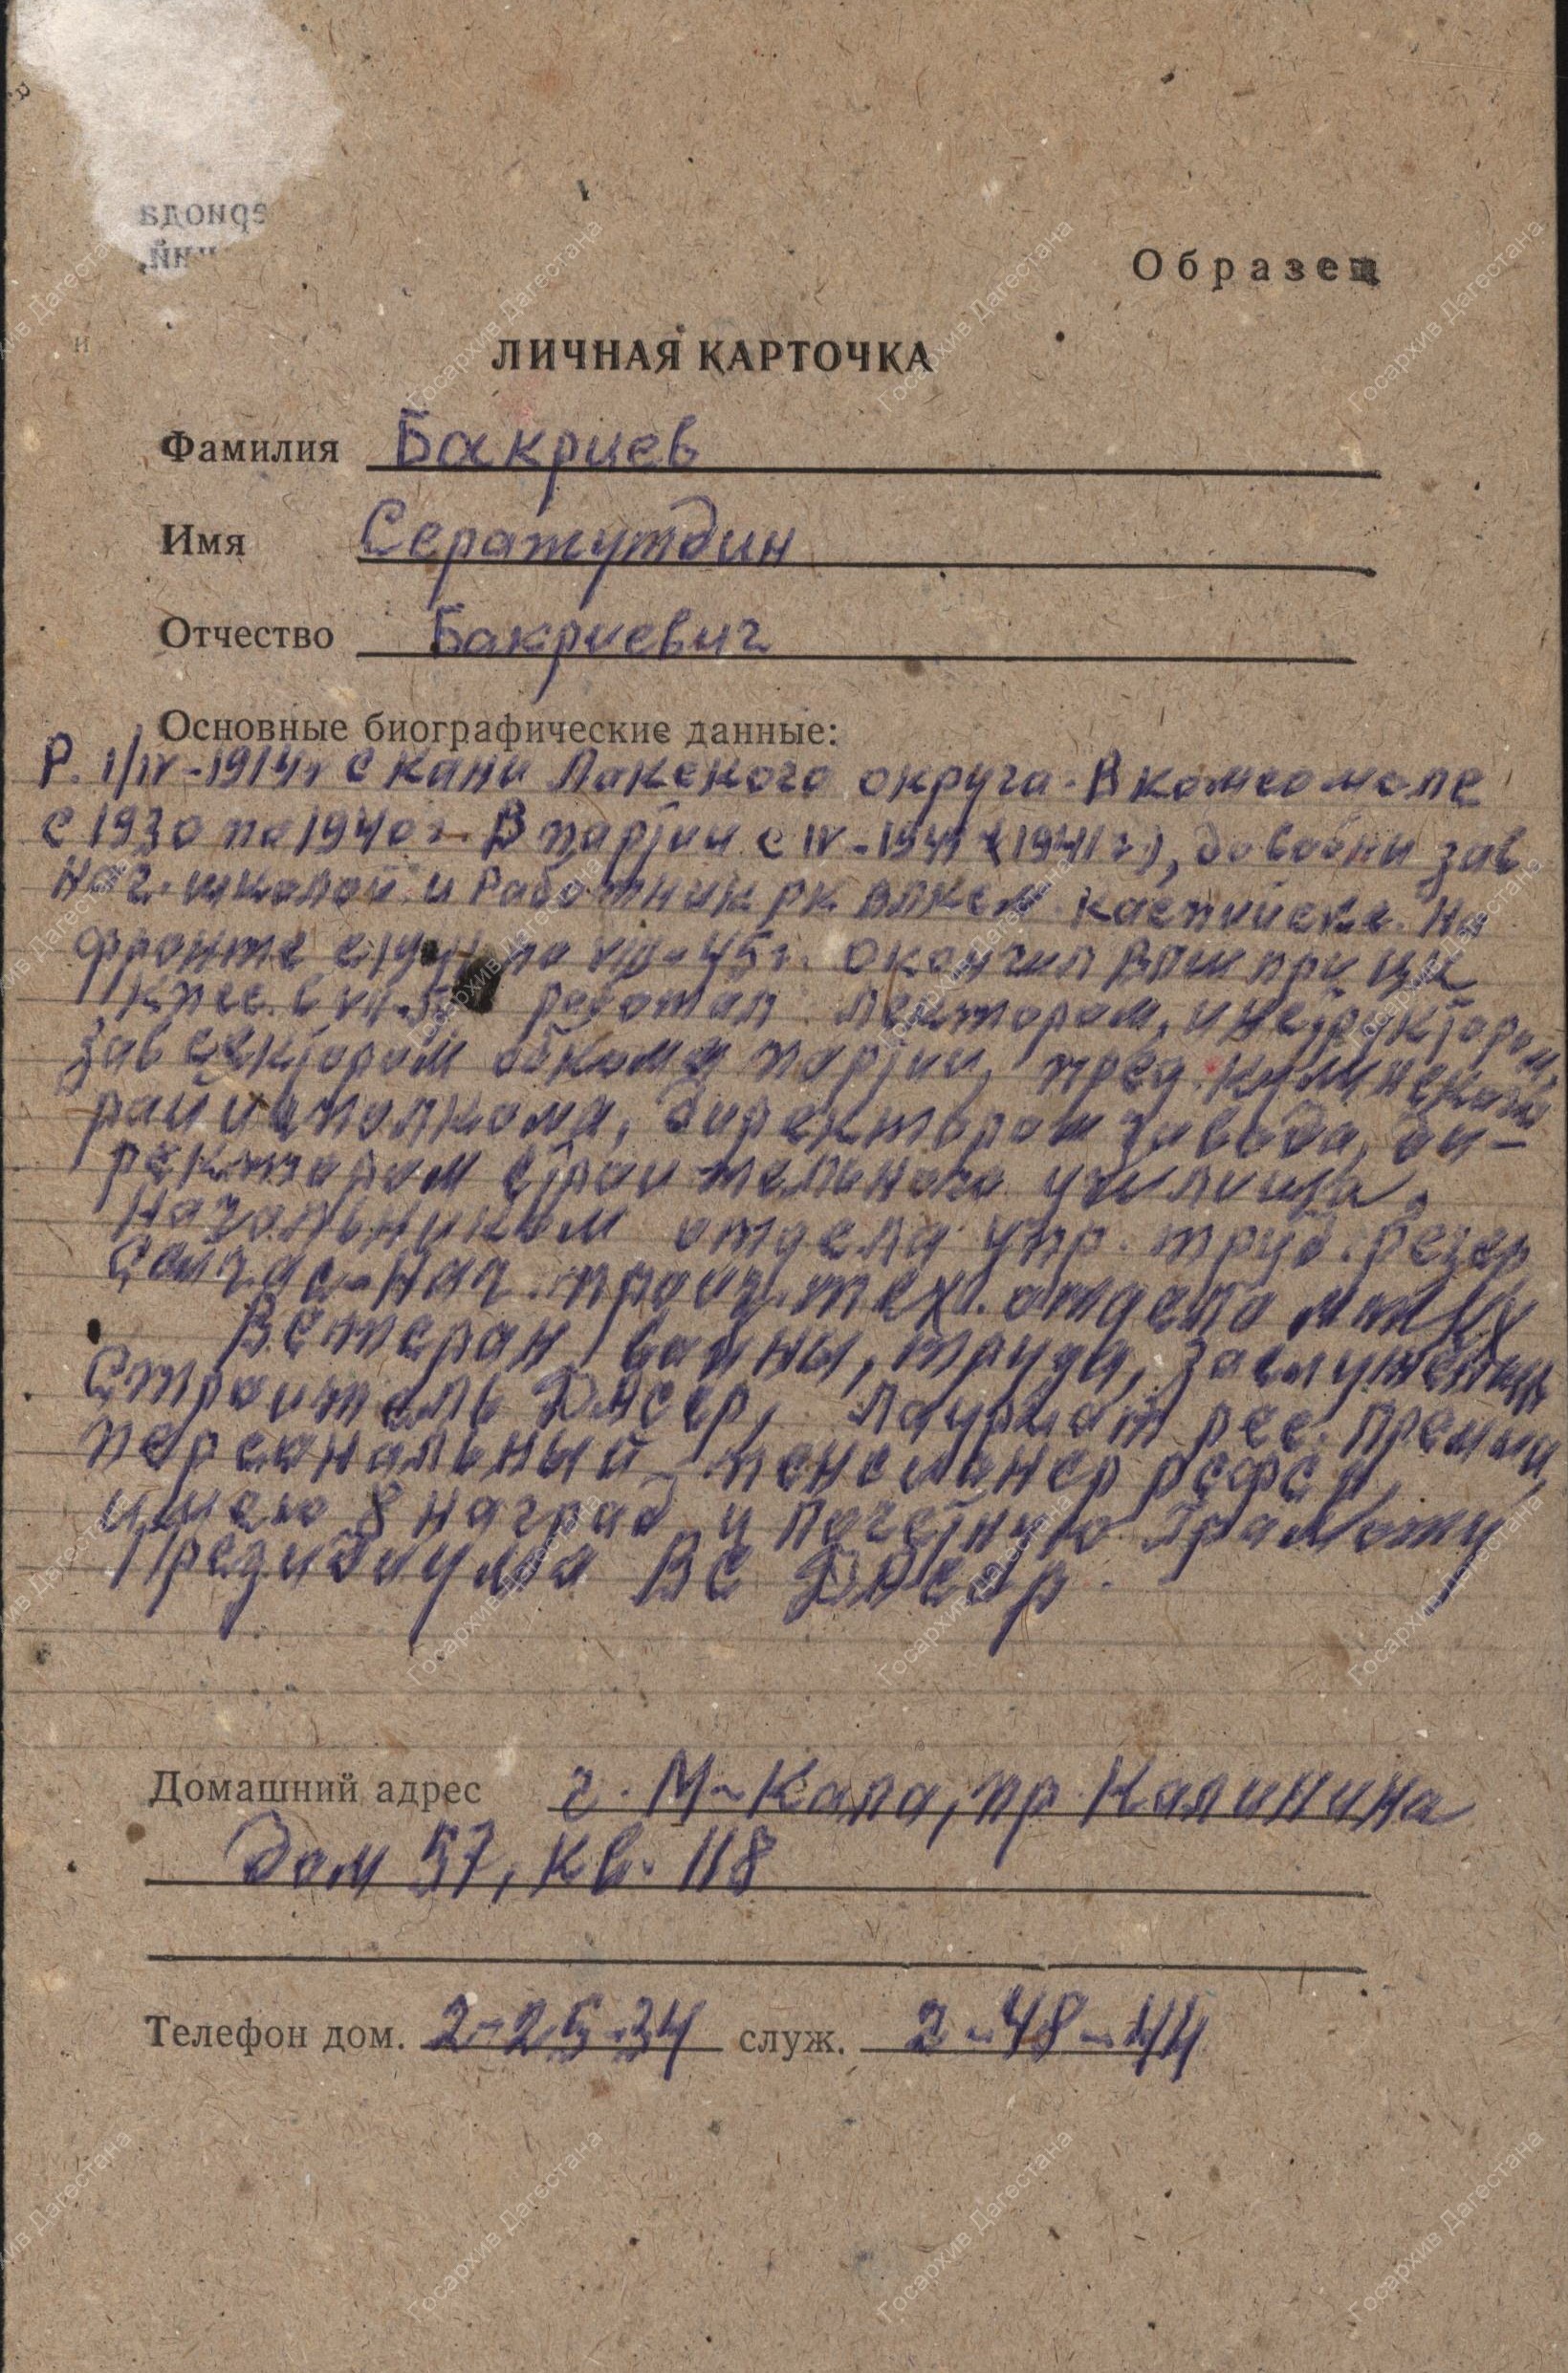 Образец
ЛИЧНАЯ КАРТОЧКА
Фамилия Бакриев
Имя Серажутдин
Отчество Бакриевич
Основные биографические данные:
Р. 1/IV-1914г с Кани Лакского округа. В комсомоле
с 1930 по 1940г. В партии с IV-1941 (1941г), до войны зав
нач. школой и работник рк влксм Каспийска. На
фронте с по VIII-45г. Окончил ВПШ при ЦК
кпсс. в работал лектором, инструктором,
зав сектором обкома партии, пред. Кулинского
райисполкома, директором завода, ди-
ректором строительного училища,
начальником отдела упр. труд. резер
Сейчас-нач. произ. тех. отдела
Ветеран войны, труда, заслуженный
строитель ДАССР, Лауреат рес. премии,
персональный пенсионер РСФСР,
имею 8 наград и Почетную Грамоту
Президиума ВС ДАССР.
Домашний адрес г. М-Кала, пр. Калинина
дом 57, кв. 118
Телефон дом. 2-25-34 служ. 2-48-44